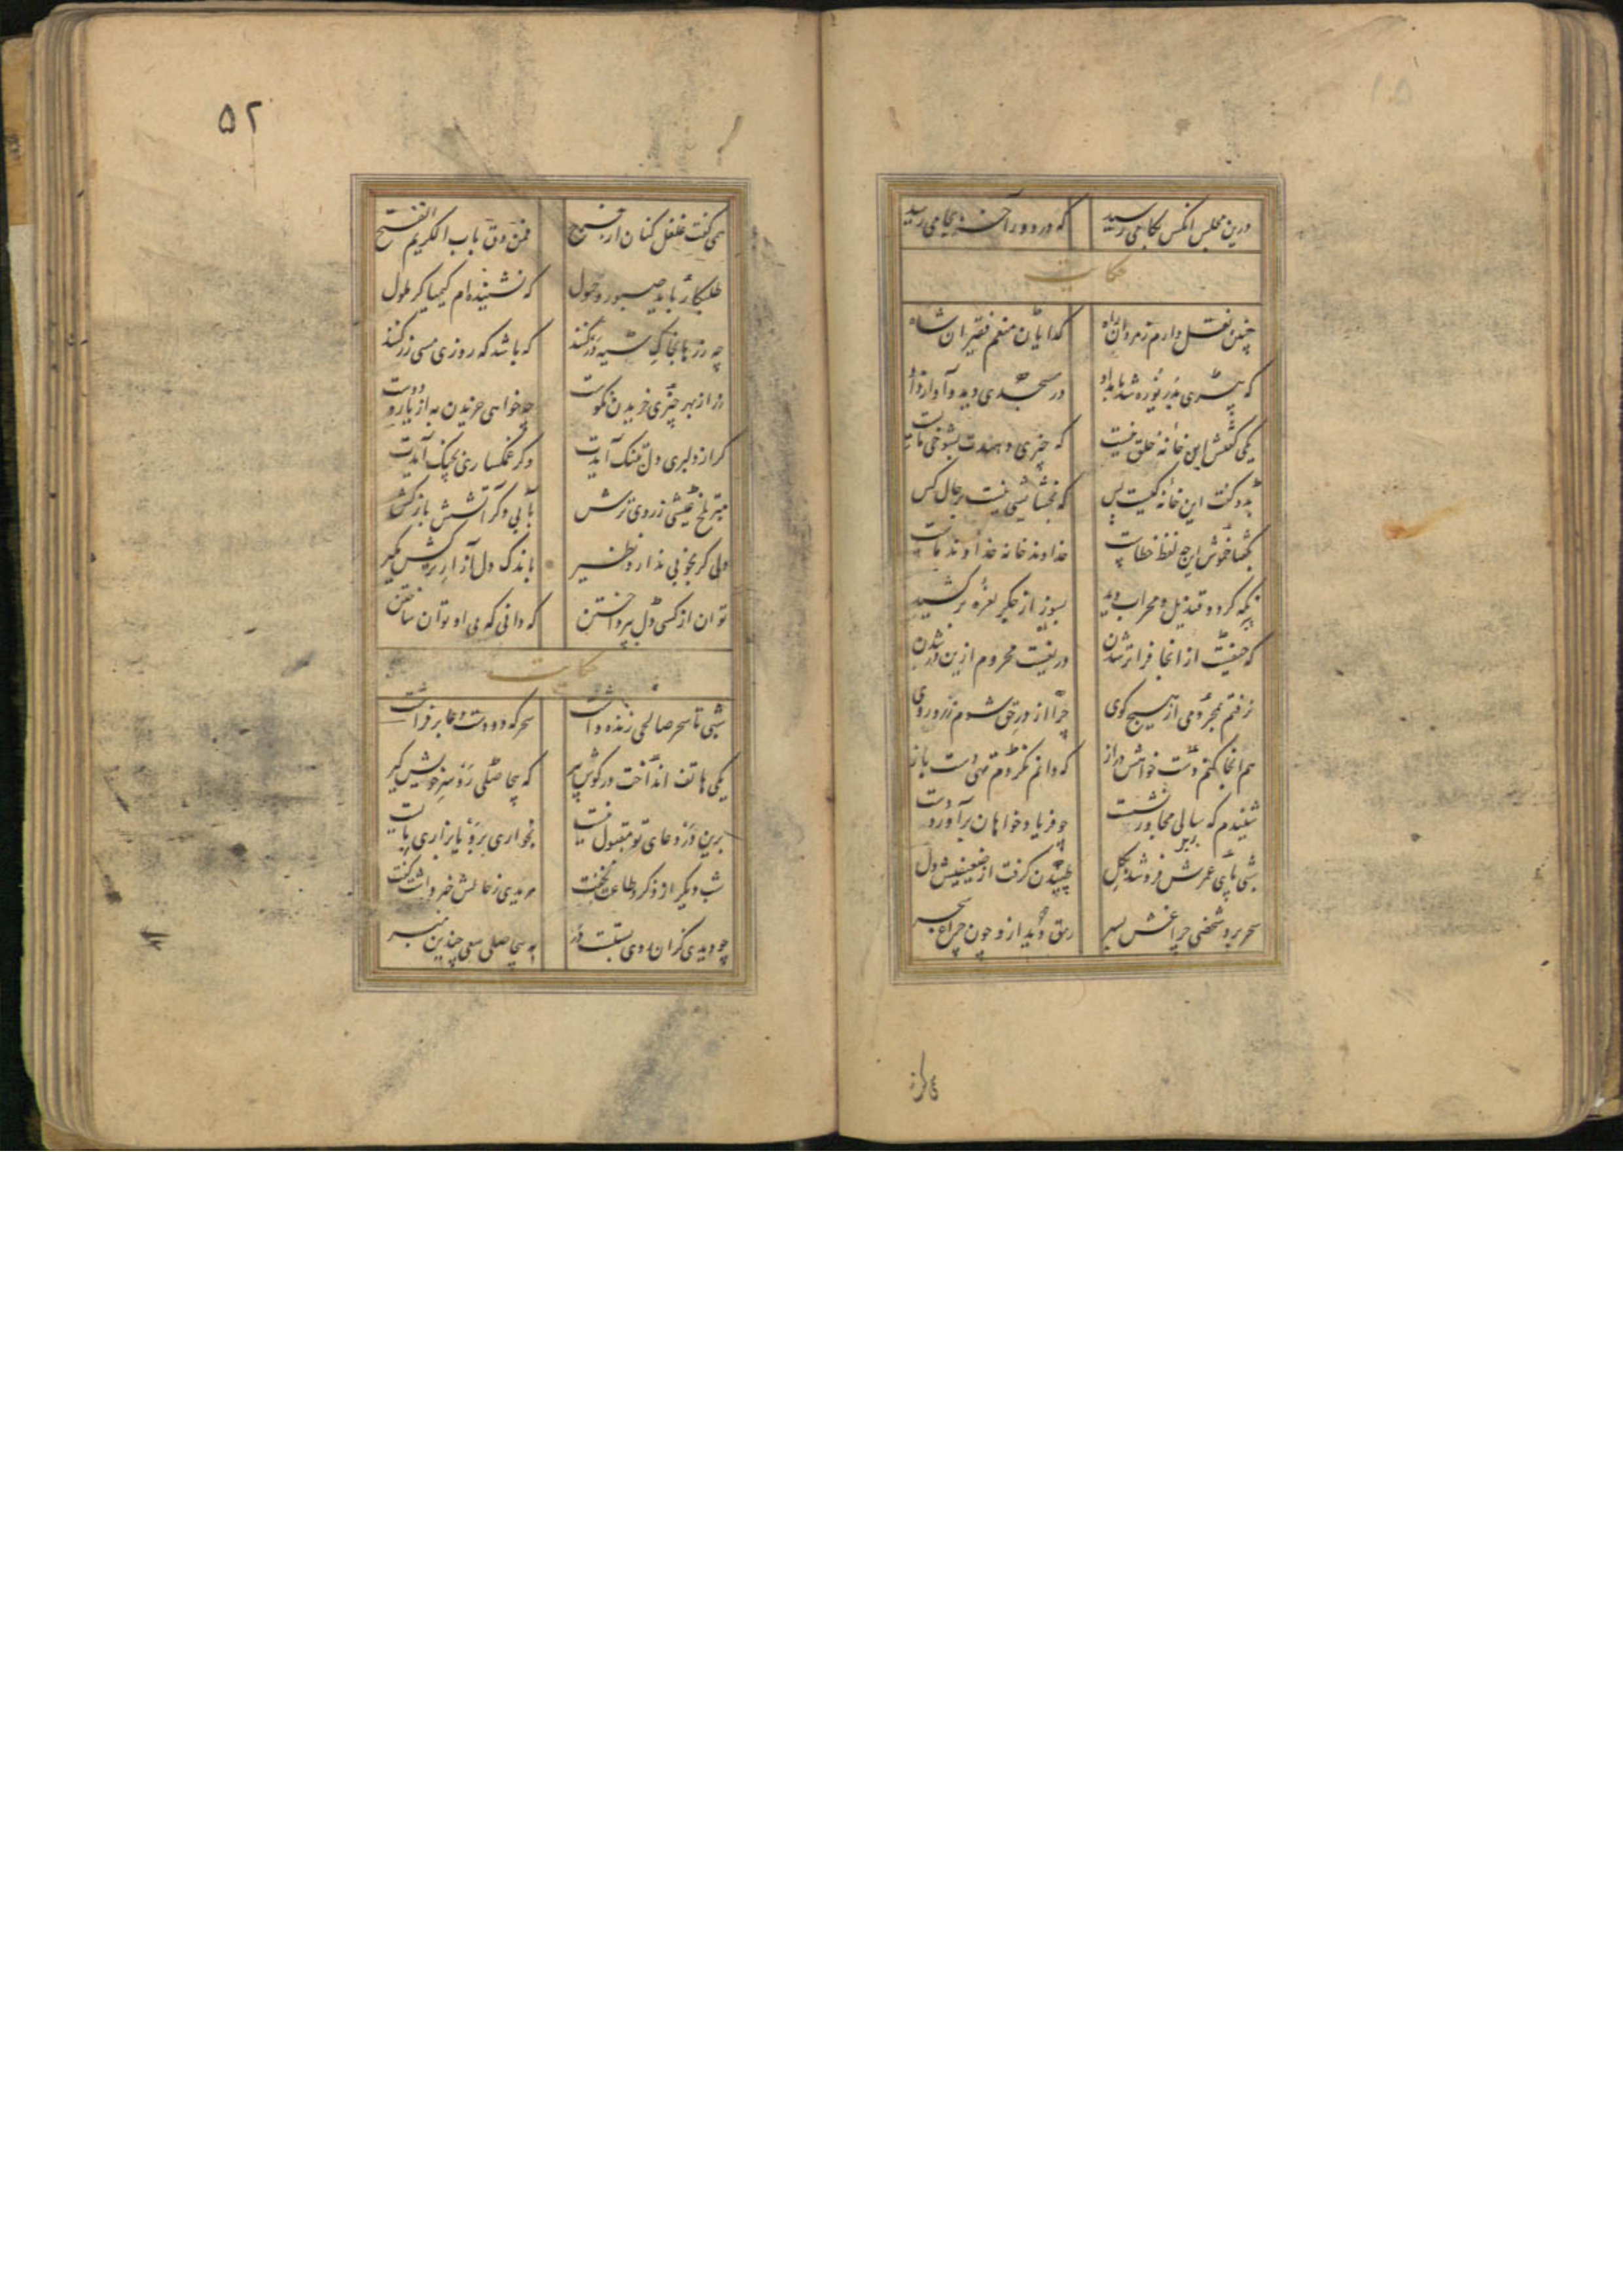 درین مجلس آنکس بکامی رسید که در دور آخر بجامی رسید
حکایت
چنین نقل دارم ز مردان راه گدایان منعم فقیران شاه
که پیری بدریوزه شد بامداد در مسجدی دید و آواز داد
یکی گفتش این خانهٔ خلق نیست که چیزی دهندت بشوخی مایست
بدو گفت این خانهٔ کیست پس که بخشایشی نیست بر حال کس
بگفتا خموش این چه لفظ خطاست خداوند خانه خداوند ماست
نگه کرد و قندیل و محراب دید بسوز از جگر نعرهٔ برکشید
که حیفست از آنجا فراتر شدن دریغست محروم ازین در شدن
نرفتم بمحرومی از هیچ کوی چرا از در حق شوم زرد روی
هم آنجا کنم دست خواهش دراز که دانم نگردم تهی دست باز
شنیدم که سالی مجاور نشست چو فریاد خواهان برآورد دست
شبی پای عمرش فرو شد بگل طپیدن گرفت از ضعیفیش دل
سحر برد شخصی چراغش بسر رمق دید ازو چون چراغ سحر
۵۲
همی گفت غلغل کنان از فرح فمن دق باب الکریم انفتح
طلبکار باید صبور و حمول که نشنیده‌ام کیمیاگر ملول
چه زرها بخاک سیه در کنند که باشد که روزی مسی زر کنند
زر از بهر چیزی خریدن نکوست چه خواهی خریدن به از یار و دوست
گر از دلبری دل بتنگ آیدت دگر غمگساری بچنگ آیدت
مبر تلخ عیشی ز روی ترش بآبی دگر آتشش باز کش
ولی گر بخوبی ندارد نظیر باندک دل آزار ترکش مگیر
توان از کسی دل بپرداختن که دانی که بی او توان ساختن
حکایت
شبی تا سحر صالحی زنده داشت سحرگه دو دست دعا برفراشت
یکی هاتف انداخت در گوش پیر که بیحاصلی رو سر خویش گیر
برین در دعای تو مقبول نیست بخواری برو یا بزاری بایست
شب دیگر از ذکر و طاعت نخفت مریدی ز حالش خبر داشت گفت
چو دیدی کزان روی بستست در به بیحاصلی سعی چندین مبر